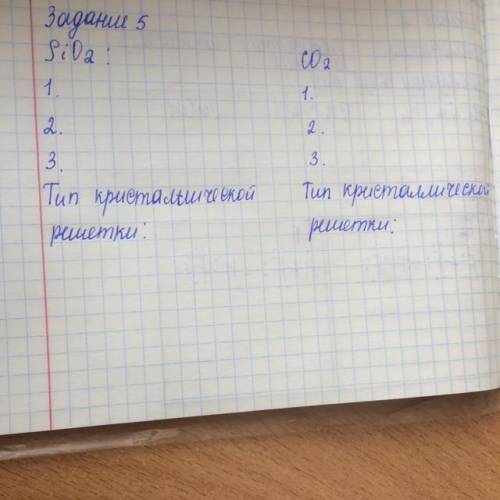 Задание 5
SiO2 :
1.
2.
3.
Тип кристалыческой
решетки:
CO2
1.
2.
3.
Тип кристаллической
решетки: